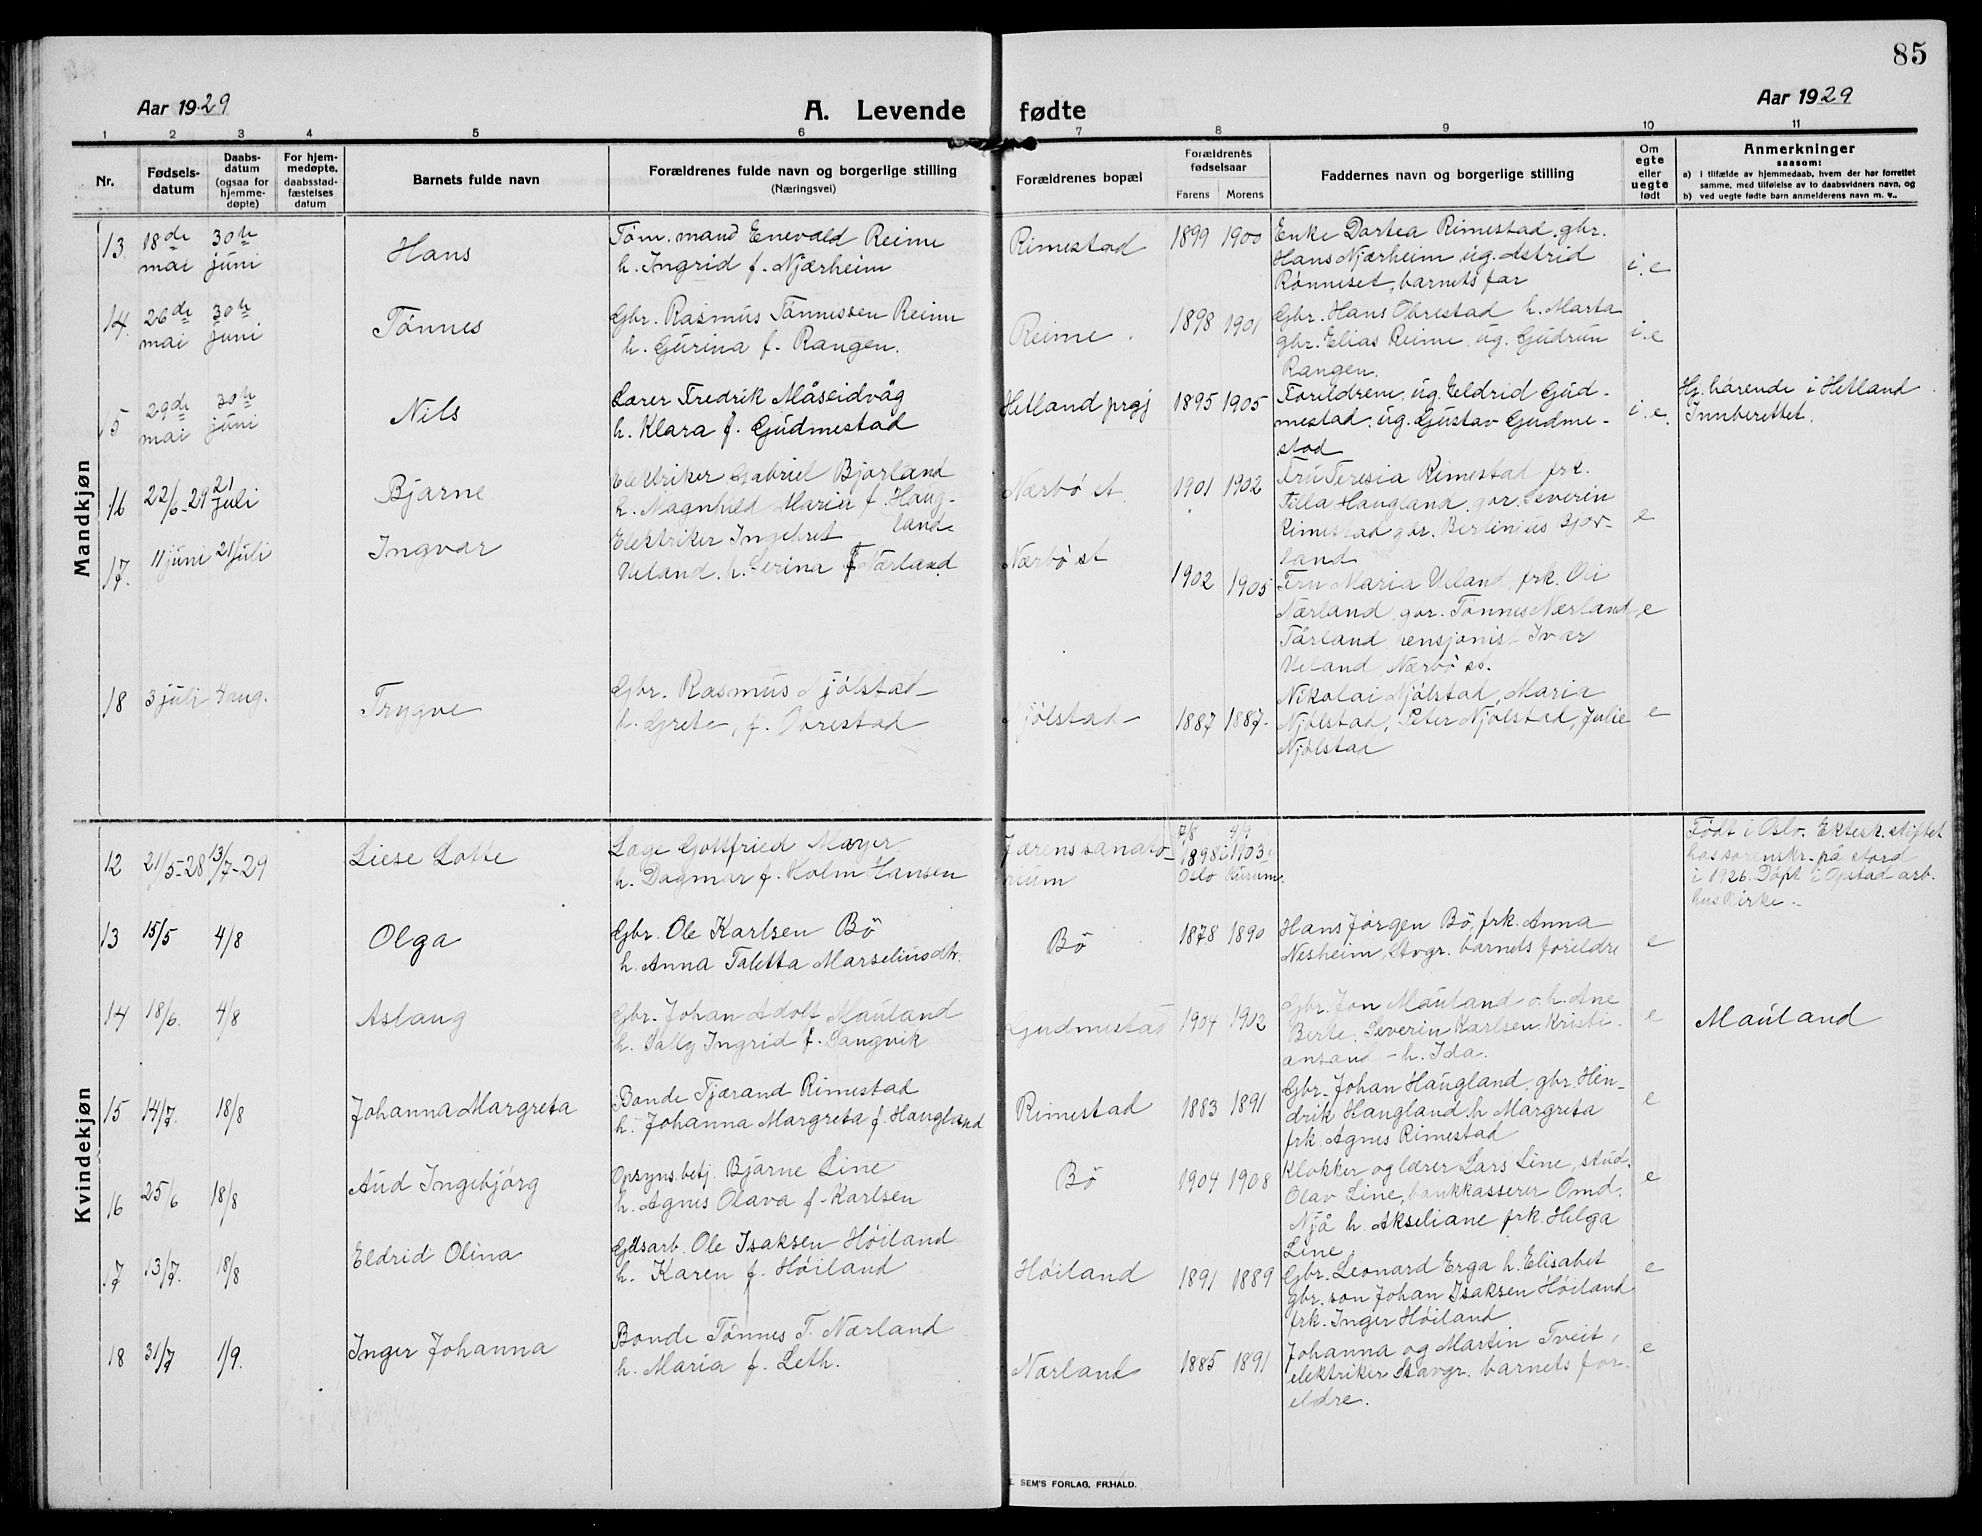 85
Aar 1929
A. Levende fødte
Aar 1929
1 2 3 4 5 6 7 8 9 10 11
Nr.
Fødsels-
datum
Daabs-
datum
(ogsaa for
hjemme-
døpte)
For hjem-
medøpte,
daabsstad-
fæstelses
datum
Barnets fulde navn
Forældrenes fulde navn og borgerlige stilling
(Næringsvei)
Forældrenes bopæl
Forældrenes
fødselsaar
Farens Morens
Faddernes navn og borgerlige stilling
Om
egte
eller
uegte
født
Anmerkninger
saasom:
a) i tilfælde av hjemmedaab, hvem der har forrettet
samme, med tilføielse av to daabsvidners navn, og
b) ved uegte fødte barn anmelderens navn m. v..
Mandkjøn
13. 18de mai 30te juni Hans
Tøm.mand Enevald Reime
h. Ingrid f. Njærheim
Rimestad 1899 1900
Enke Dortea Rimestad, gbr.
Hans Njærheim ug. Astrid
Rønneset, barnets far
i.e
14. 26de mai 30te juni Tønnes
Gbr. Rasmus Tønnessen Reime
h. Gurina f. Rangen.
Reime. 1898 1901
Gbr. Hans Obrestad h. Marta
gbr. Elias Reime ug. Gudrun
Rangen.
i.e
5 29de mai 30te juni Nils
Lærer Fredrik Måseidvåg
h. Klara f. Gudmestad
Hetland prgj 1895 1905
Foreldrene, ug. Eldrid Gud-
mestad, ug. Gustav Gudme-
stad
i.e.
Hj. hørende i Hetland
Innberettet.
16 22/6-29 21 juli Bjarne
Elektriker Gabriel Bjorland
h. Magnhild Marie f. Haug-
land.
Nærbø st. 1901 1902
Fru Teresia Rimestad frk.
Tilla Haugland, gbr. Severin
Rimestad gbr. Berlinius Bjor-
land
e
17. 11 juni 21 juli Ingvar
Elektriker Ingebret
Ueland. h. Serina f. Nærland
Nærbø st 1902 1905
Fru Maria Ueland, frk. Oli
Nærland, gbr. Tønnes Nærland
Tårland, pensjonist Ivar
Ueland, Nærbø st.
e
18 3 juli 4 aug. Trygve
Gbr. Rasmus Njølstad
h. Grete, f. Obrestad
Njølstad 1887 1887.
Nikolai Njølstad, Marie
Njølstad, Peter Njølstad, Julie
Njølstad
e
Kvindekjøn
12 21/5-28 13/7-29 Liese Lotte
Lage Gottfried Mayer
h. Dagmar f. Holm Hansen
Jærens sanato-
rium
7/8 1898 i Oslo
4/9 1903 i
Født i Oslo. Ektesk. stiftet
hos sorenskr. på Stord
i 1926. Døpt i Opstad arb.
hus kirke.
13 15/5 4/8 Olga
Gbr. Ole Karlsen Bø
h. Anna Taletta Marseliusdtr.
Bø 1878 1890
Hans Jørgen Bø, frk. Anna
Nesheim, Stvgr. barnets foreldre
e
14 18/6. 4/8 Aslaug
Gbr. Johan Adolf Mauland
h. Sally Ingrid f. Langvik
Gudmestad 1904 1902
Gbr. Jon Mauland o. h. Ane
Berte. Severin Karlsen, Kristi-
ansand - h. Ida.
e
Mauland
15 14/7. 18/8 Johanna Margreta
Bonde Tjærand Rimestad
h. Johanna Margreta f. Haugland
Rimestad 1883 1891
Gbr. Johan Haugland, gbr. Hen-
drik Haugland h Margreta
frk. Agnes Rimestad
e
16 25/6 18/8 Aud Ingebjørg
Opsyns.betj. Bjarne Line
h. Agnes Olava f. Karlsen
Bø 1904 1908
Klokker og lærer Lars Line, stud.
Olav Line, bankkasserer Omd.
Njå h. Akseliane frk. Helga
Line
e
17 13/7. 18/8 Eldrid Olina
Gdsarb. Ole Isaksen Høiland
h. Karen f. Høiland
Høiland 1891 1889
Gbr. Leonard Erga h. Elisabet
Gbr. søn Johan Isaksen Høiland
frk. Inger Høiland
e
18 31/7 1/9. Inger Johanna
Bonde Tønnes T. Nærland
h. Maria f. Leth.
Nærland 1885 1891
Johanna og Martin Tveit,
elektriker Stavgr. barnets for-
eldre.
e
E. SEM'S FORLAG, FR.HALD.